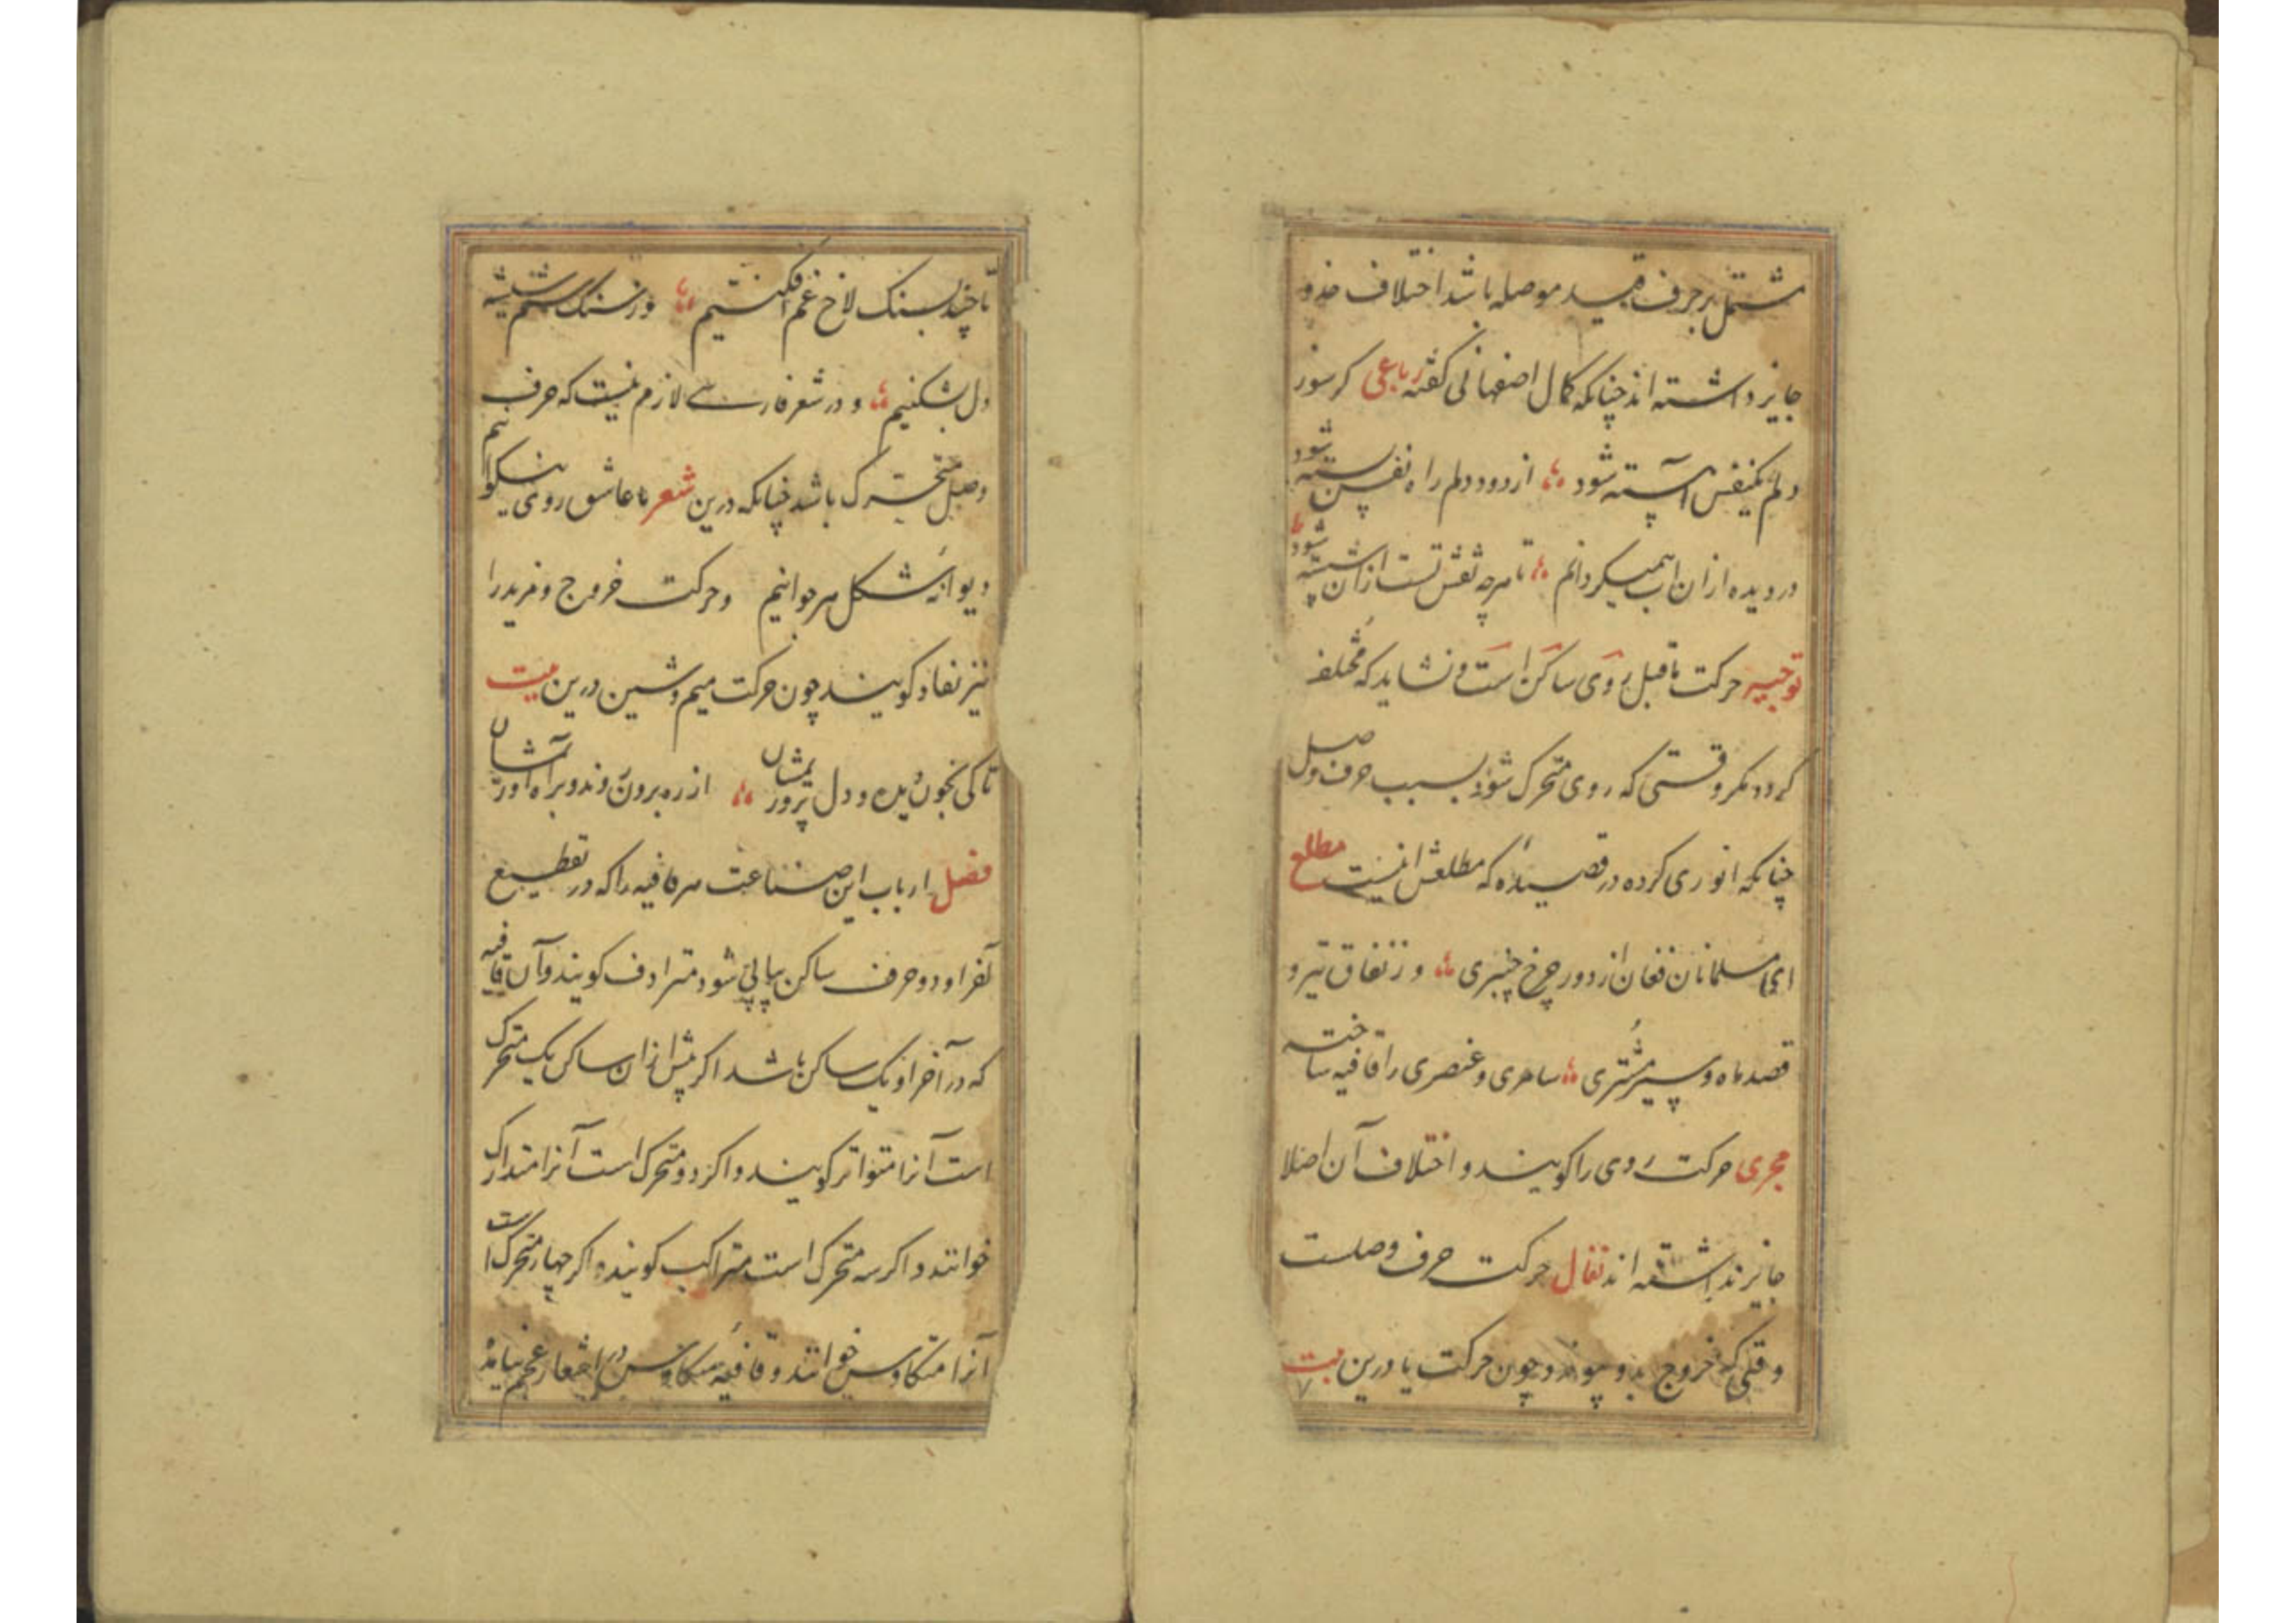 مشتمل بر حرف قید موصله باشد اختلاف حذو
جایز داشته اند چنانکه کمال اصفهانی گفته رباعی کر سوز
دلم یکنفس آهسته شود از دود دلم راه نفس بسته شود
در دیده از آن آب همیکردانم تا هرچه نقش تست از آن شسته شود
توجیه حرکت ماقبل روی ساکن است و نشاید که مختلف
کردد مکر وقتی که روی متحرک شود بسبب حرف وصل
چنانکه انوری کرده در قصیده که مطلعش اینست مطلع
ای مسلمانان فغان از دور چرخ چنبری وز نفاق تیر و
قصد ماه و سیر مشتری ساحری و عنصری را قافیه ساخته
مجری حرکت روی را کویند و اختلاف آن اصلا
جایز نداشته اند نفاذ حرکت حرف وصلست
وقتی که خروج بدو پیوندد چون حرکت یا درین بیت
تا چند بسنک لاخ غم افکنیم وز سنک ستم شیشه
دل بشکنیم و در شعر فارسی لازم نیست که حرف
وصل متحرک باشد چنانکه درین شعر ما عاشق روی نیکوانیم
دیوانه شکل هر جوانیم وحرکت خروج و مزید را
نیز نفاد کویند چون حرکت میم و شین درین بیت
تا کی بخون دیده و دل پروریمشان از ره برون روند و براه آوریمشان
فصل ارباب این صناعت هر قافیه را که در تقطیع
آخر او دو حرف ساکن پیاپی شود مترادف کویند و آن قافیه
که در آخر او یک ساکن باشد اکر پیش از آن ساکن یک متحرک
است آنرا متواتر کویند و اکر دو متحرک است آنرا متدارک
خوانند و اکر سه متحرک است متراکب کویند و اکر چهار متحرک است
آنرا متکاوس خوانند و قافیه متکاوس در اشعار عجم نیامده